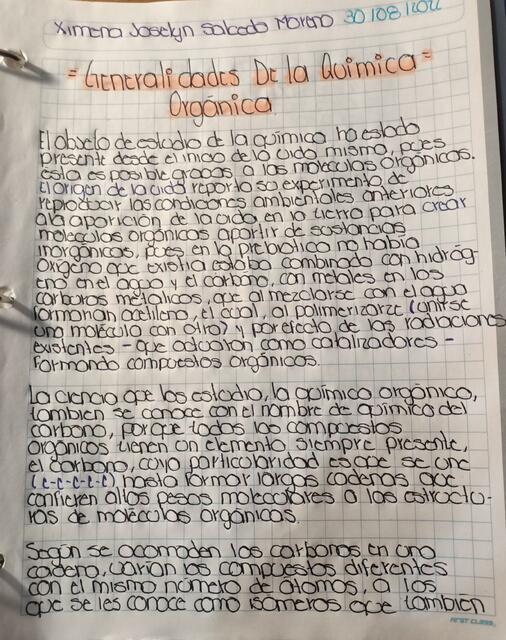 Ximena Joselyn Salcedo Moreno 30/08/2022
= Generalidades De la Química =
Orgánica
El objeto de estudio de la química ha estado
presente desde el inicio de la vida misma, pues
esta es posible gracias a las moleculas orgánicas.
El origen de la vida reporta su experimento de
reproducir las condiciones ambientales anteriores
a la aparición de la vida en la tierra para crear
moleculas orgánicas apartir de sustancias
inorgánicas, pues en la prebiotica no había
oxígeno que existía estaba combinado con hidróg-
eno en el agua y el carbono, con metales en los
carburos métalicos, que al mezclarse con el agua
formarian acetileno, el cual, al polimerizarze (unirse
una molécula con otra) y por efecto de las radiaciones
existentes - que actuaron como catalizadores -
formando compuestos orgánicos.
La ciencia que los estudia, la química orgánica,
tambien se conoce con el nombre de química del
carbono, porque todos los compuestos
orgánicos tienen un elemento siempre presente,
el carbono, cuya particularidad es que se une
(c-c-c-c-c) hasta formar largas cadenas que
confieren altos pesos moleculares a las estructu-
ras de moléculas orgánicas.
Según se acomoden los carbonos en una
cadena, varían los compuestos diferentes
con el mismo número de átomos, a los
que se les conoce como isómeros que también
FIRST CLASS